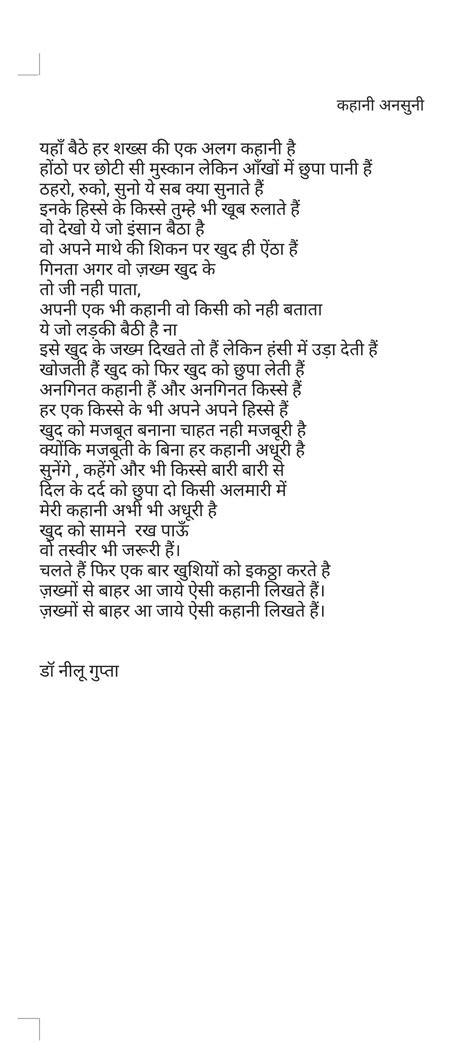 कहानी अनसुनी
यहाँ बैठे हर शख्स की एक अलग कहानी है
होंठो पर छोटी सी मुस्कान लेकिन आँखों में छुपा पानी हैं
ठहरो, रुको, सुनो ये सब क्या सुनाते हैं
इनके हिस्से के किस्से तुम्हे भी खूब रुलाते हैं
वो देखो ये जो इंसान बैठा है
वो अपने माथे की शिकन पर खुद ही ऐंठा हैं
गिनता अगर वो ज़ख्म खुद के
तो जी नही पाता,
अपनी एक भी कहानी वो किसी को नही बताता
ये जो लड़की बैठी है ना
इसे खुद के जख्म दिखते तो हैं लेकिन हंसी में उड़ा देती हैं
खोजती हैं खुद को फिर खुद को छुपा लेती हैं
अनगिनत कहानी हैं और अनगिनत किस्से हैं
हर एक किस्से के भी अपने अपने हिस्से हैं
खुद को मजबूत बनाना चाहत नही मजबूरी है
क्योंकि मजबूती के बिना हर कहानी अधूरी है
सुनेंगे , कहेंगे और भी किस्से बारी बारी से
दिल के दर्द को छुपा दो किसी अलमारी में
मेरी कहानी अभी भी अधूरी है
खुद को सामने रख पाऊँ
वो तस्वीर भी जरूरी हैं।
चलते हैं फिर एक बार खुशियों को इकठ्ठा करते है
ज़ख्मों से बाहर आ जाये ऐसी कहानी लिखते हैं।
ज़ख्मों से बाहर आ जाये ऐसी कहानी लिखते हैं।
डॉ नीलू गुप्ता